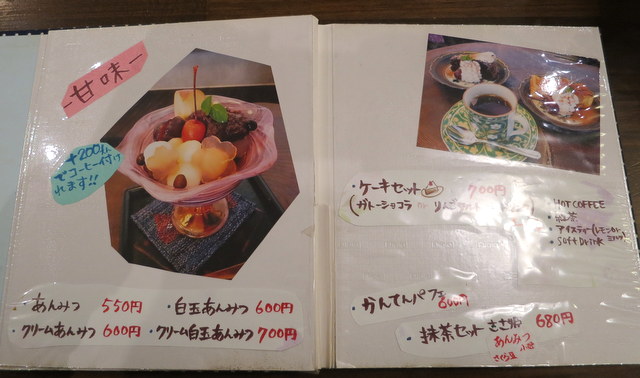 -甘味-
+200円
でコーヒー付け
れます!!
・あんみつ 550円 ・白玉あんみつ 600円
・クリームあんみつ 600円 ・クリーム白玉あんみつ 700円
・ケーキセット 700円
(ガトーショコラ or りんご
・HOT COFFEE
・紅茶
・アイスティー(レモンor
・Soft Drink
・かんてんパフェ
600円
・抹茶セット 680円
あんみつ